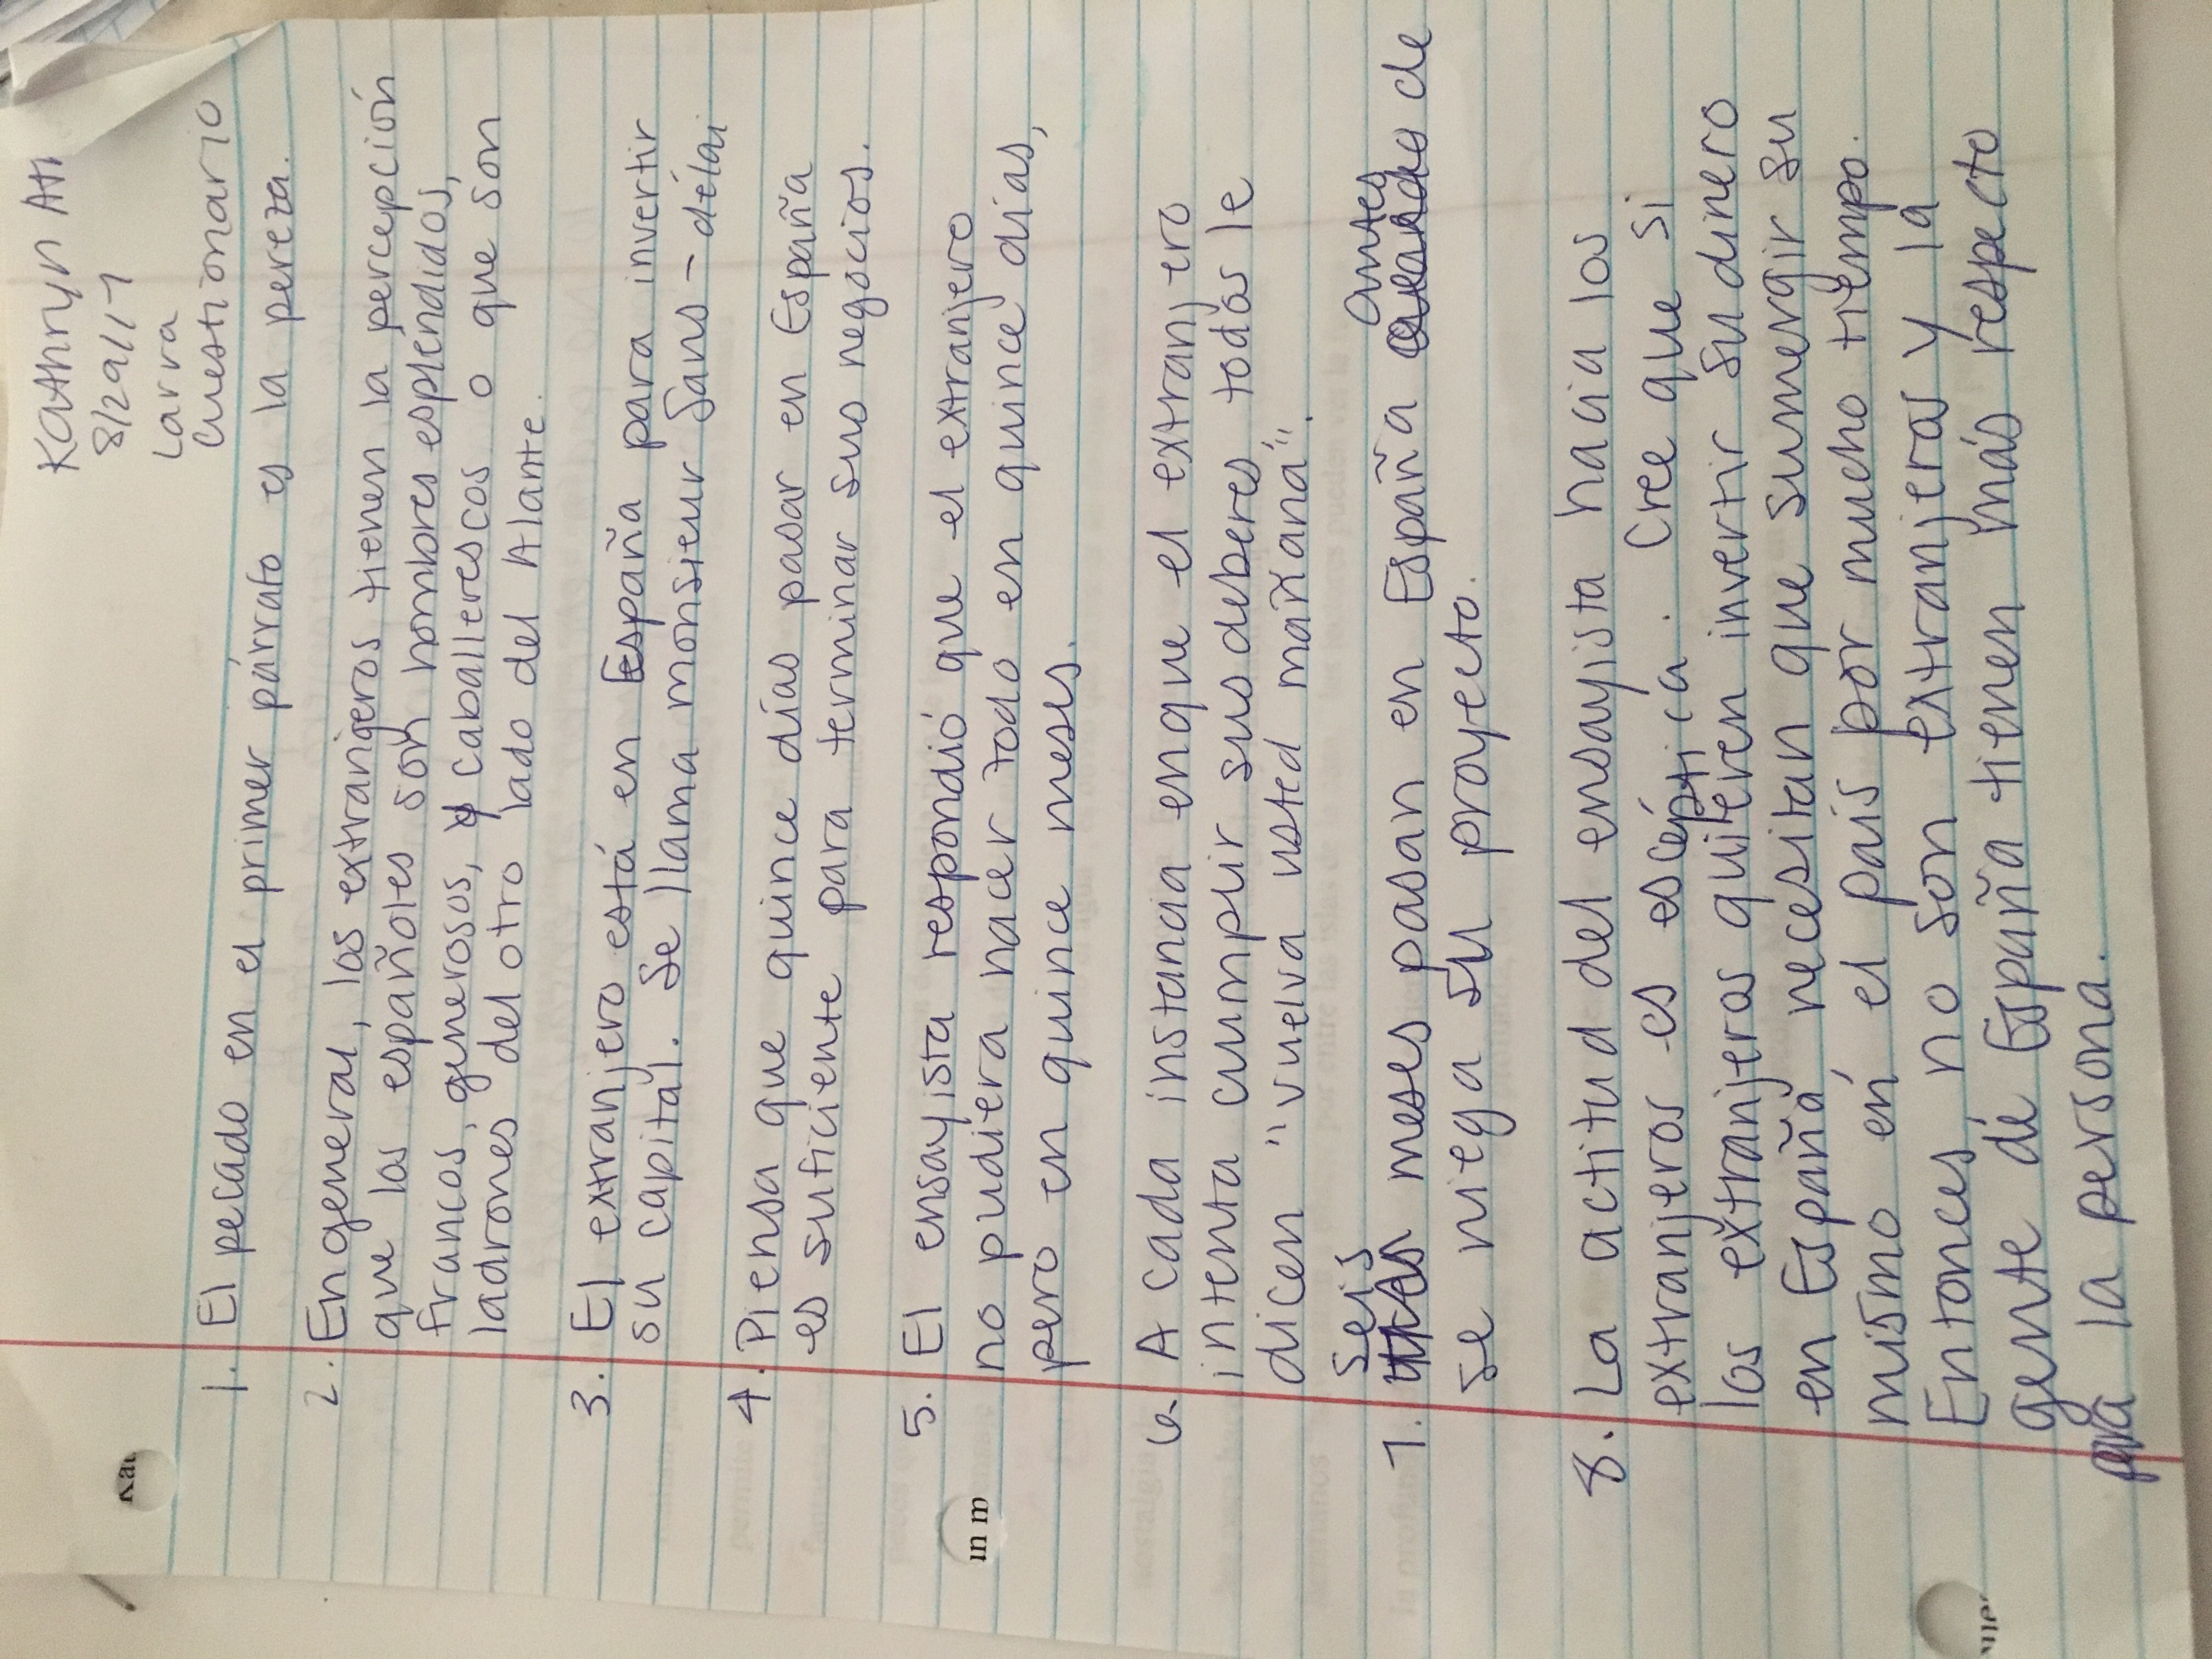 Kathryn
8/29/17
Larra
Cuestionario
1. El pecado en el primer párrafo es la pereza.
2. En general, los extranjeros tienen la percepción
que los españoles son hombres espléndidos,
francos, generosos, y caballerescos o que son
ladrones del otro lado del Alante.
3. El extranjero está en España para invertir
su capital. Se llama monsieur Sans-délai
4. Piensa que quince días pasar en España
es suficiente para terminar sus negocios.
5. El ensayista respondió que el extranjero
no pudiera hacer todo en quince días,
in m
pero en quince meses.
6. A cada instancia en que el extranjero
intenta cumplir sus deberes, todos le
dicen "vuelva usted mañana".
seis antes
7. meses pasan en España de
se niega su proyecto.
8. La actitud del ensayista hacia los
extranjeros es escéptica. Cree que si
los extranjeros quieren invertir su dinero
en España, necesitan que sumergir su
mismo en el país por mucho tiempo.
Entonces, no son extranjeros y la
gente de España tienen más respecto
para la persona.